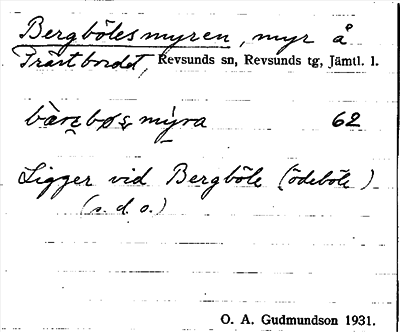 Bergbölesmyren, myr å
Prästbordet, Revsunds sn, Revsunds tg, Jämtl. l.
62
Ligger vid Bergböle (ödeböle)
(s. d. o.)
O. A. Gudmundson 1931.